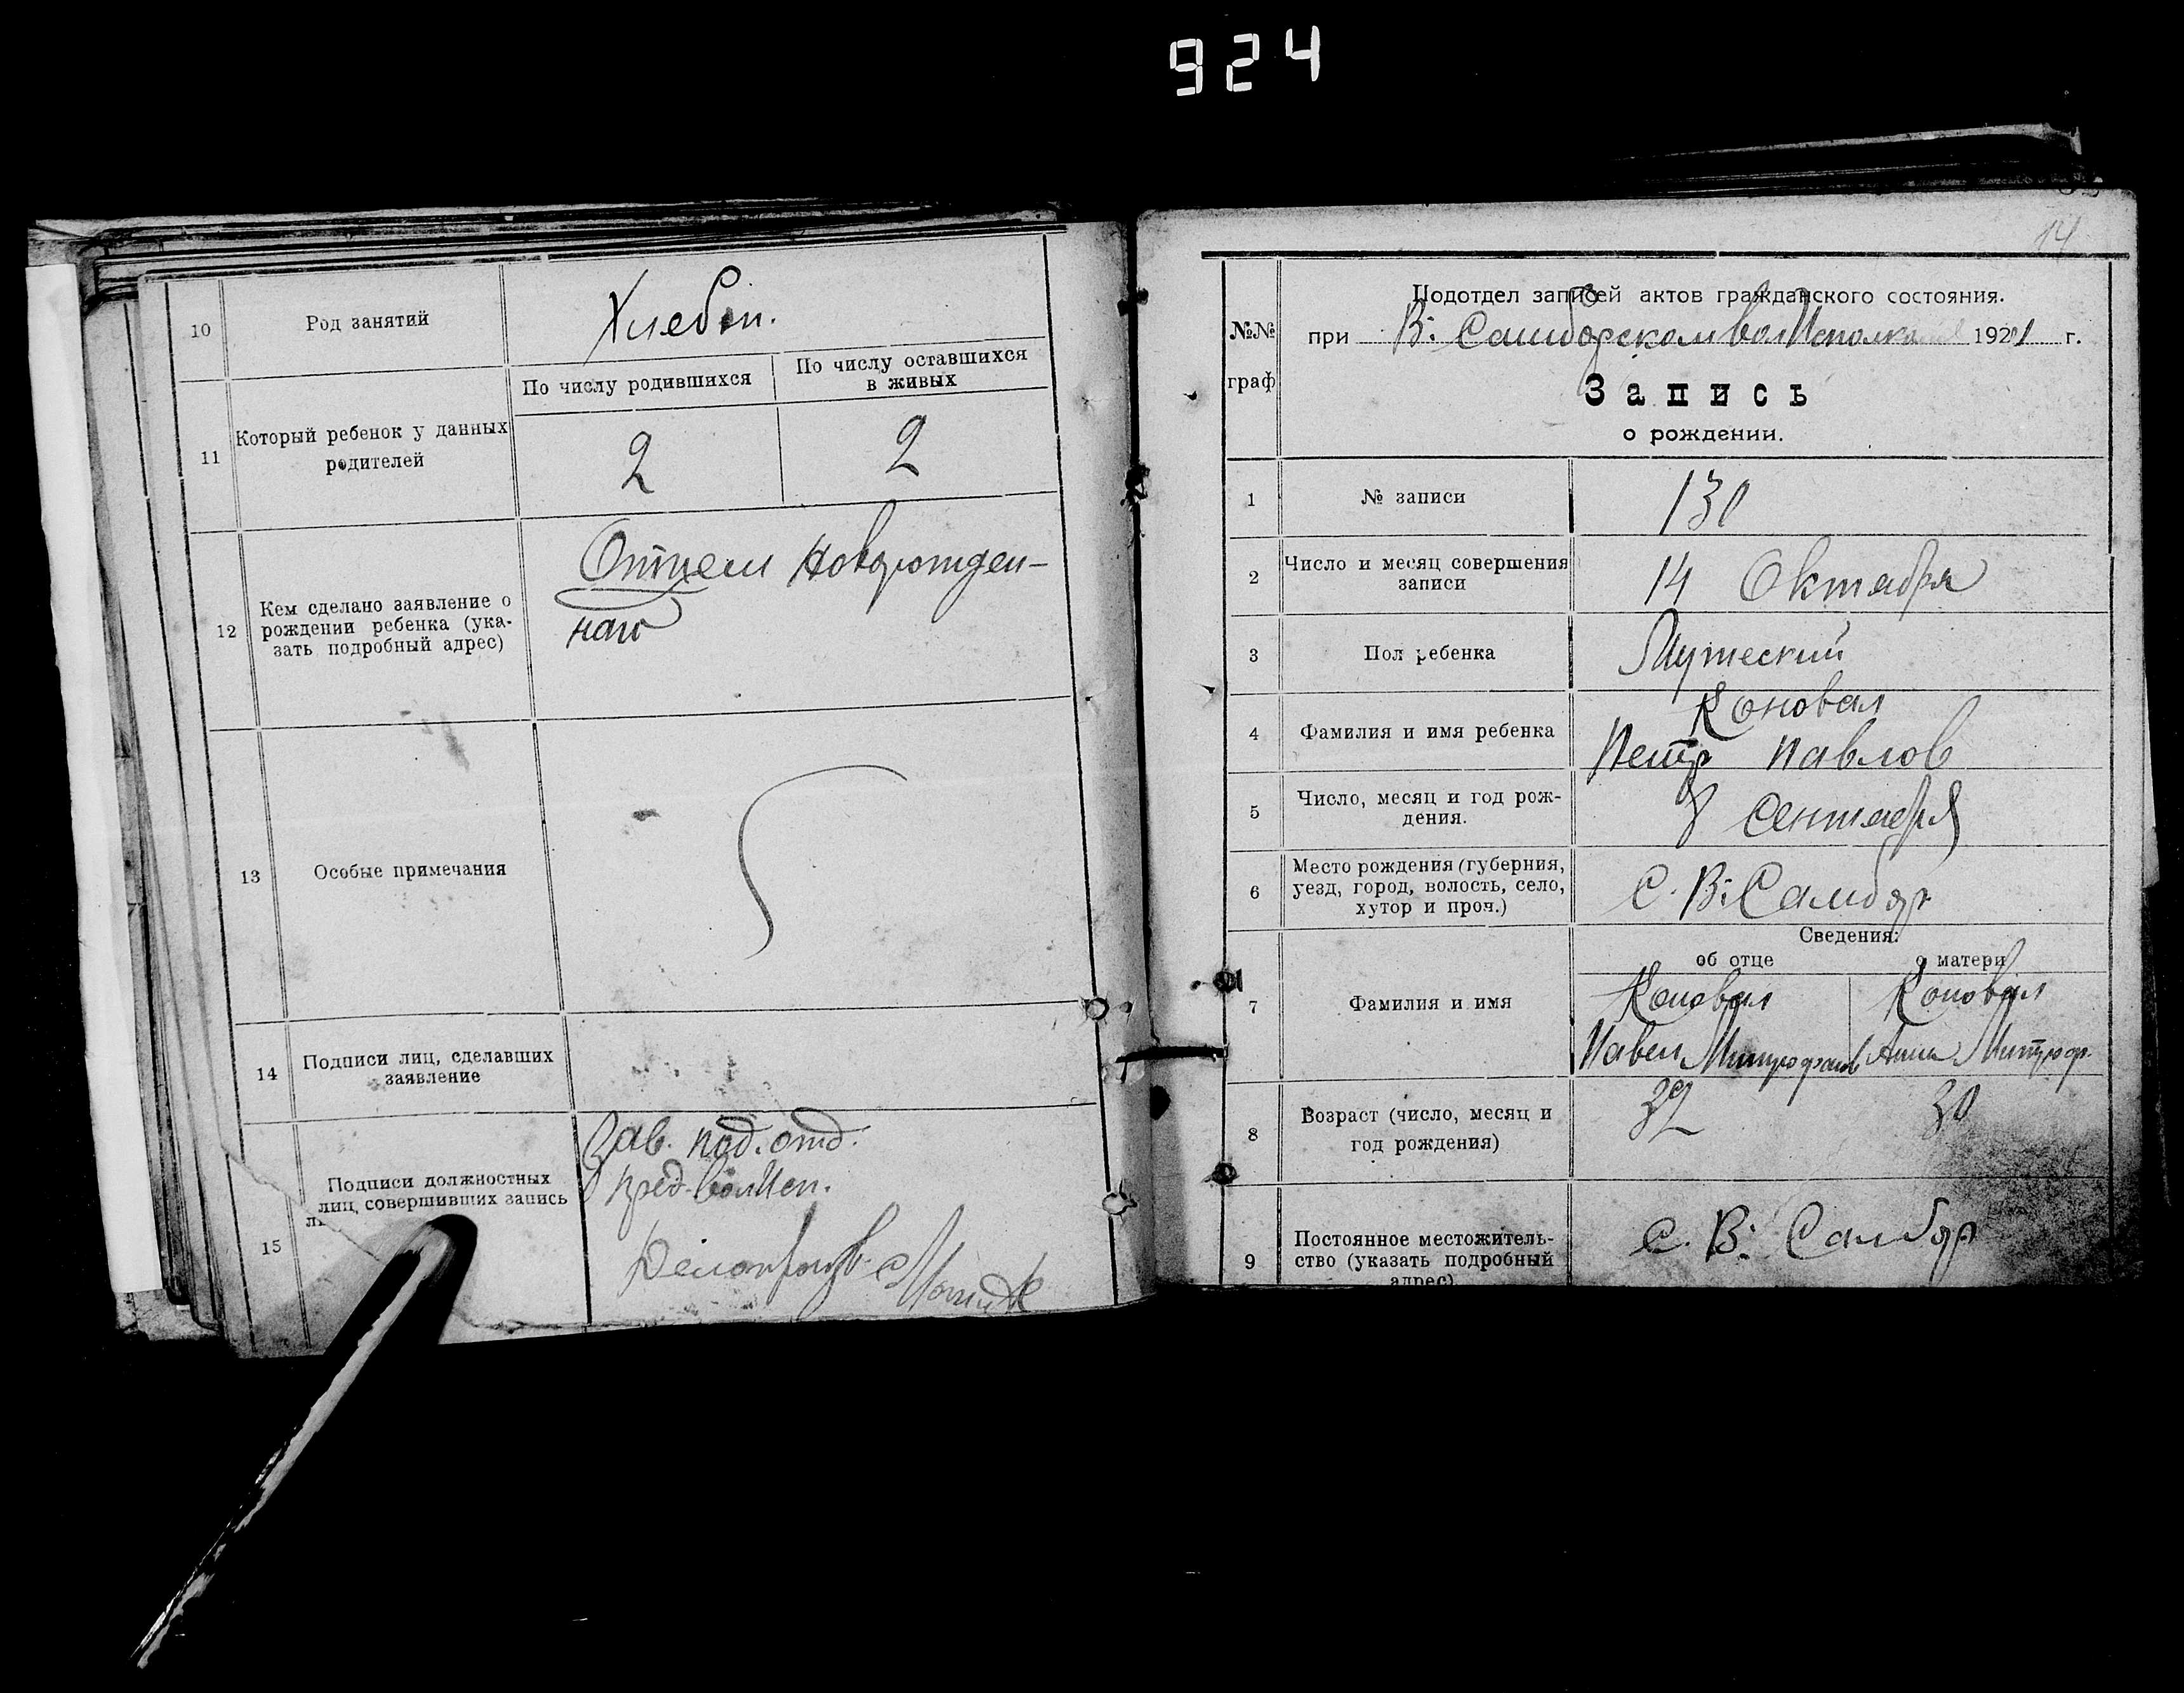 924
10
Род занятий
Хлебоп.
11
Который ребенок у данных
родителей
По числу родившихся
По числу оставшихся
в живых
2
2
12
Кем сделано заявление о
рождении ребенка (ука-
зать подробный адрес)
Отцем новорожден-
наго
13
Особые примечания
14
Подписи лиц, сделавших
заявление
15
Подписи должностных
лиц, совершивших запись
Зав. под. отд.
Пред. волИсп.
14
№№
граф
Подотдел записей актов гражданского состояния.
при В: Самборском волИсполкоме 1921 г.
Запись
о рождении.
1
№ записи
130
2
Число и месяц совершения
записи
14 Октября
3
Пол ребенка
Мужеский
4
Фамилия и имя ребенка
Коновал
Петр Павлов
5
Число, месяц и год рож-
дения.
8 Сентября
6
Место рождения (губерния,
уезд, город, волость, село,
хутор и проч.)
С. В: Самбор
Сведения:
об отце
о матери
7
Фамилия и имя
Коновал
Павел Митрофанов
Коновал
Анна Митроф.
8
Возраст (число, месяц и
год рождения)
32
30
9
Постоянное местожитель-
ство (указать подробный
адрес)
с. В: Самбор